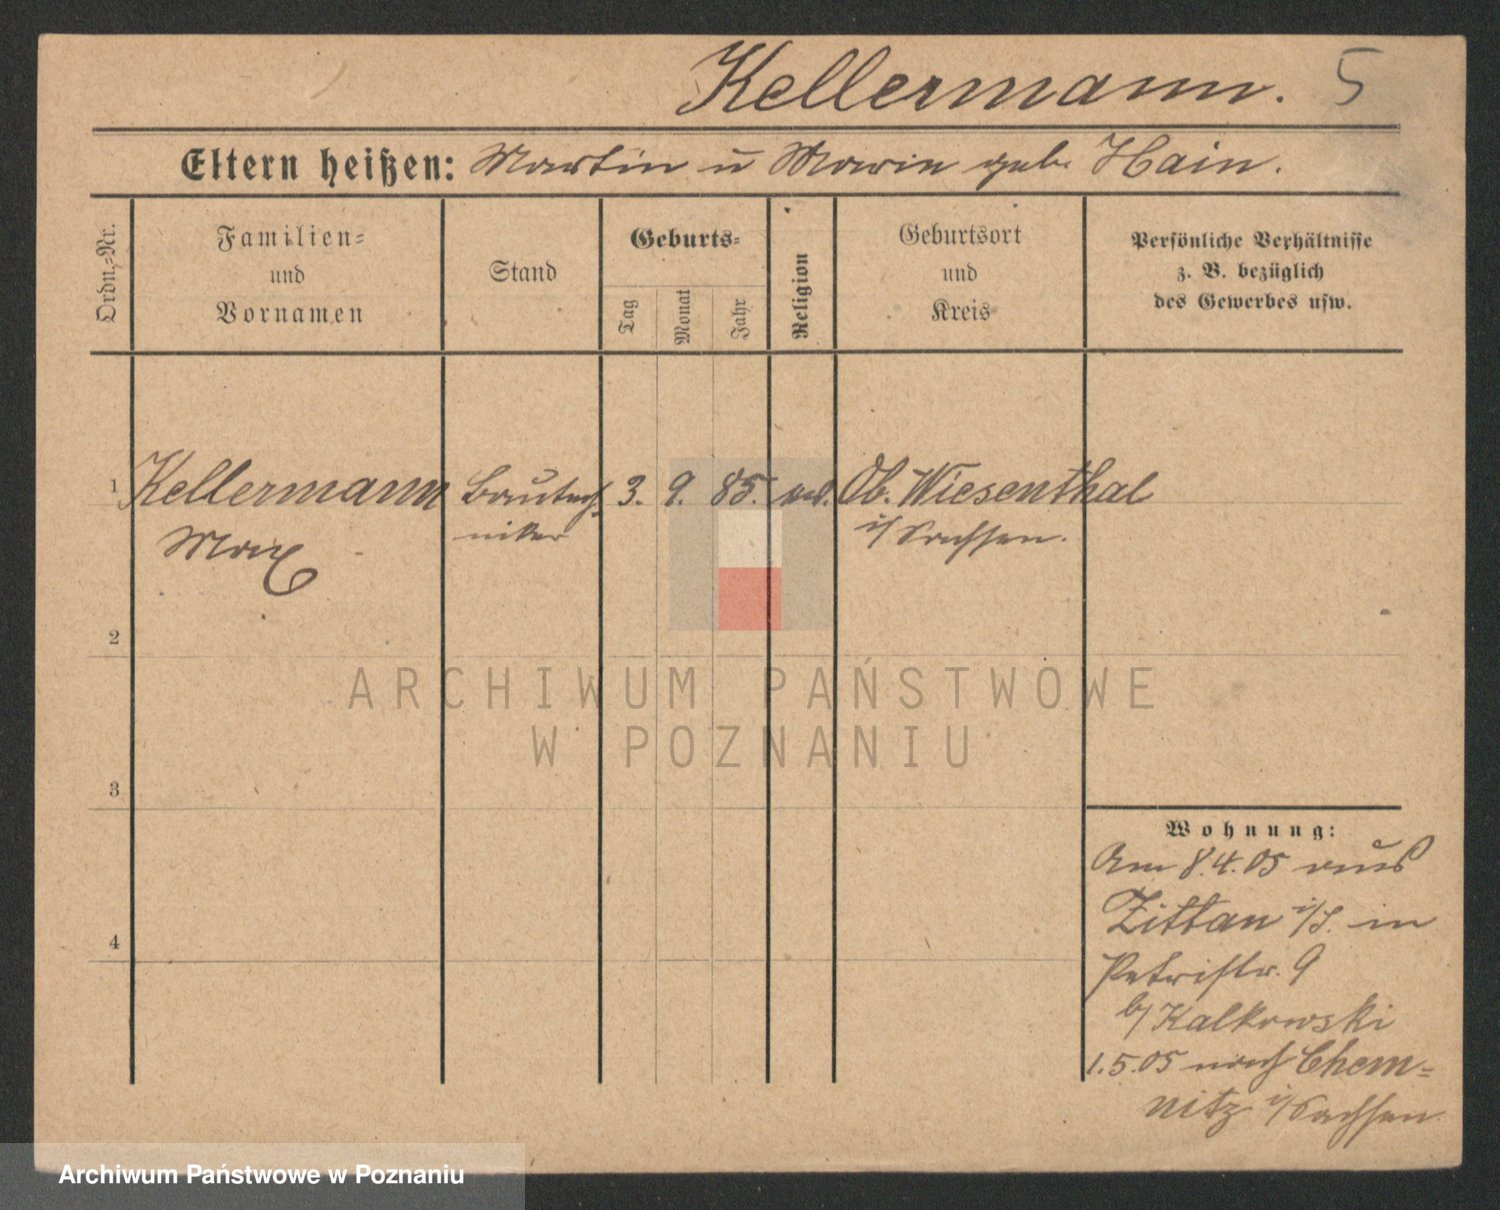 Kellermann. 5
Eltern heißen: Martin u Marie geb. Hain.
Ordn.-Nr.
Familien-
und
Vornamen
Stand
Geburts-
Tag
Monat
Jahr
Religion
Geburtsort
und
Kreis
Persönliche Verhältnisse
z. B. bezüglich
des Gewerbes usw.
1 Kellermann Bautech- 3. 9. 85. ev. Ob. Wiesenthal
Max niker i/Sachsen.
2
ARCHIWUM PAŃSTWOWE
W POZNANIU
3
Wohnung:
Am 8.4.05 aus
Zittau i/S. in
4
Petristr. 9
b/Kalkowski
1.5.05 nach Chem-
nitz i/Sachsen.
Archiwum Państwowe w Poznaniu